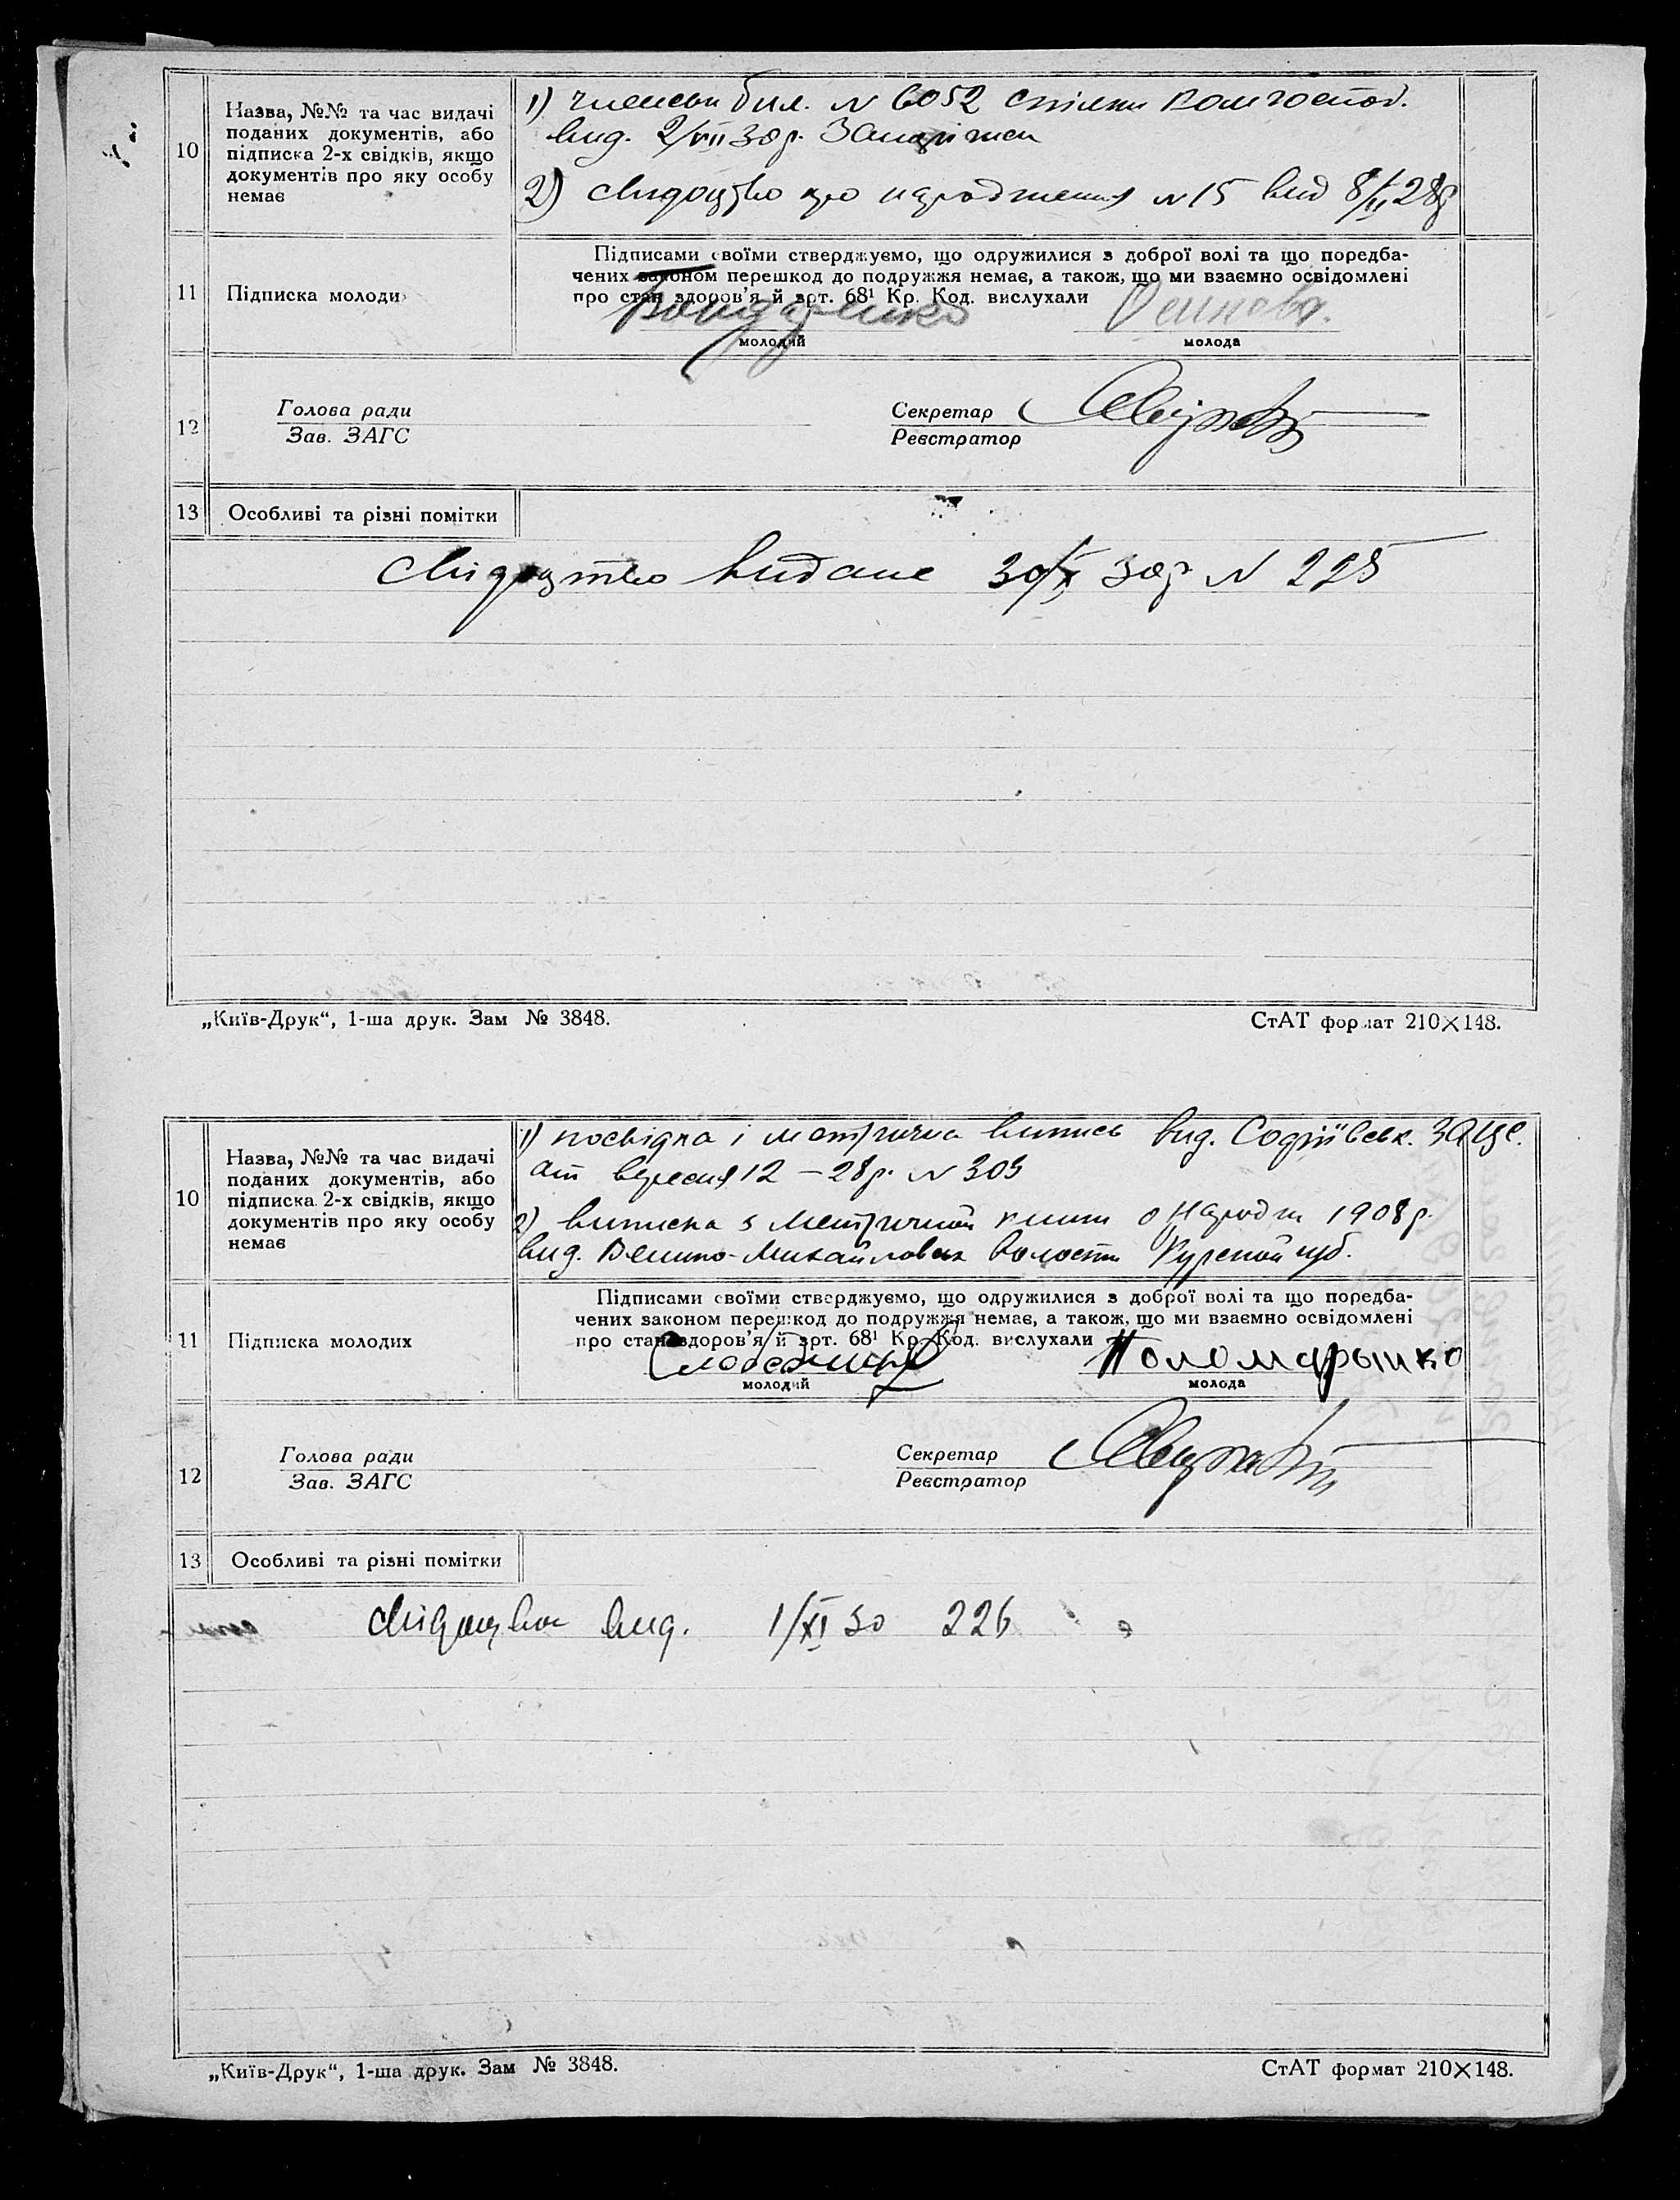 10
Назва, №№ та час видачі
поданих документів, або
підписка 2-х свідків, якщо
документів про яку особу
немає
1) членськ бил. N 6052 спілки комгоспод.
вид. 2/VII 30 р.
2) свидоцтво про народження N 15 вид 8/II 28р
11
Підписка молоди
Підписами своїми стверджуємо, що одружилися з доброї волі та що поредба-
чених законом перешкод до подружжя немає, а також, що ми взаємно освідомлені
про стан здоров'я й арт. 68¹ Кр. Код. вислухали
Бондаренко
Осипова.
молодий
молода
12
Голова ради
Зав. ЗАГС
Секретар
Реєстратор
13
Особливі та різні помітки
свідоцтво видане 30/X 30р N 225
„Київ-Друк“, 1-ша друк. Зам № 3848.
СтАТ формат 210×148.
10
Назва, №№ та час видачі
поданих документів, або
підписка 2-х свідків, якщо
документів про яку особу
немає
1) посвідка і метрична випись вид. Софіївськ.
от вересня 12 – 28р. N 303
2) виписка з метричной книги о народж 1908 р.
вид. Велико-Михайловск волости Курской губ.
11
Підписка молодих
Підписами своїми стверджуємо, що одружилися з доброї волі та що поредба-
чених законом перешкод до подружжя немає, а також, що ми взаємно освідомлені
про стан здоров'я й арт. 68¹ Кр. Код. вислухали
Поломарынко
молодий
молода
12
Голова ради
Зав. ЗАГС
Секретар
Реєстратор
13
Особливі та різні помітки
свідоцтво вид. 1/XI 30 226
„Київ-Друк“, 1-ша друк. Зам № 3848.
СтАТ формат 210×148.